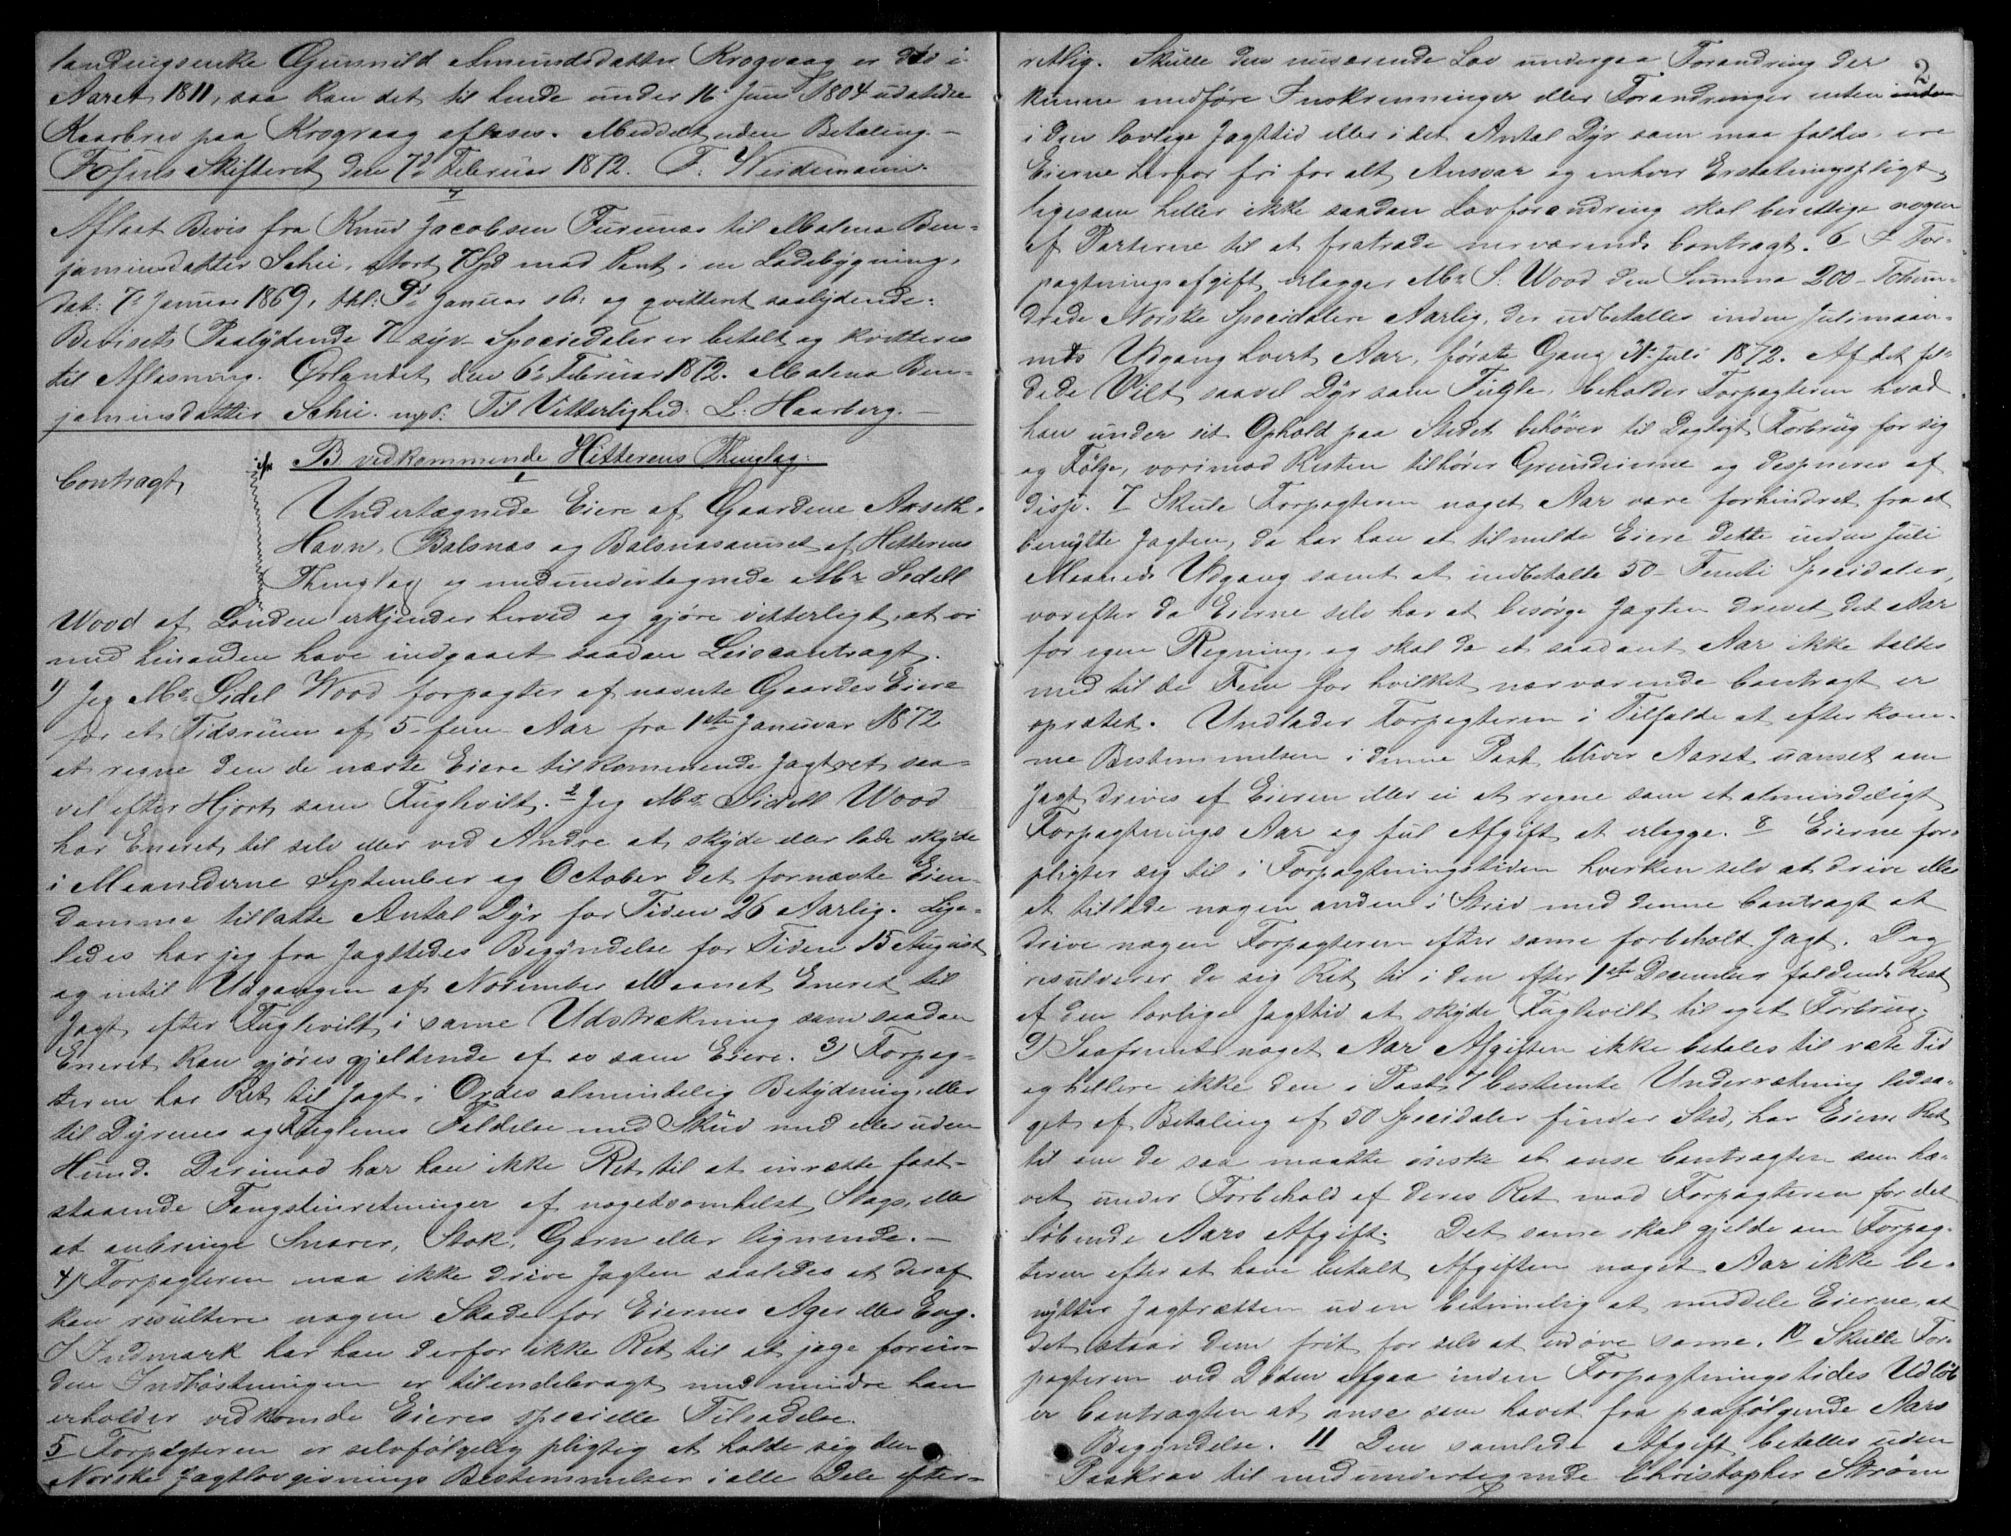 landingsenke Gunnild Amundsdatter Krogvaag er død i
Aaret 1811, saa kan det til hende under 16 Juni 1804 udstedte
Kaarbrev paa Krogvaag aflæses. Meddelt uden Betaling.-
Fosens Skifteret den 7de Februar 1872. F. Weidemann.
7
Aflæst Bevis fra Knud Jacobsen Furunæs til Malena Ben-
jaminsdatter Schei, stort 7 Spd mod Pant i en Ladebygning,
dat: 7 Januar 1869, thl: Januar s. A: og qvitteret saalydende:
Bevisets Paalydende 7 syv Speciedaler er betalt og kvitteres
til Aflæsning. Ørlandet den 6te Februar 1872. Malena Ben-
jaminsdatter Schei. m. p. P. Til Vitterlighed. L. Haarberg.-
B vedkommende Hitterens Thinglag:
1
Contragt,
Undertægnede Eiere af Gaardene Aaseth,
Havn, Balsnæs og Balsnæsaunet af Hitterens
Thinglag og medundertegnede Mr Sidell
Wood af London erkjender herved og gjøre vitterligt, at vi
med hinanden have indgaaet saadan Leiecontragt.
1) Jeg Mr. Sidel Wood forpagter af nævnte Gaardes Eiere
for et Tidsrum af 5 - fem - Aar fra 1ste Januvar 1872
at regne den de nævte Eiere tilkommende Jagtret saa-
vel efter Hjort som Fuglevilt. 2 Jeg Mr. Sidell Wood
har Eneret til selv eller ved Andre at skyde eller lade skyde
i Maanederne September og October det fornævte Eien-
domme tillatte Antal Dyr for Tiden 26 Aarlig. Lige-
ledes har jeg fra Jagttides Begyndelse for Tiden 15 August
og intil Udgangen af November Maanet Eneret til
Jagt efter Fuglevilt i same Udstrækning som saadan
Eneret kan gjøres gjeldende af os som Eiere. 3) Forpag-
teren har Ret til Jagt i Ordes almindelig Betydning, eller
til Dyrenes og Fuglenes Feldelse med Skud med eller uden
Hund. Derimod har han ikke Ret til at inrette fast-
staaende Fangstinretninger af nogetsomhelst Slags, eller
at anbringe Snarer, Stok, Garn eller lignende.-
4) Forpagteren maa ikke drive Jagten saaledes at deraf
kan resultere nogen Skade for Eiernes Ager eller Eng.
I Indmark har han derfor ikke Ret til at jage foren-
den Indhøstningen er tilendebragt med mindre han
erholder vedkomde Eieres specielle Tilladelse.
5 Forpagteren er selvfølgelig pligtig at holde sig den
Norske Jagtlovgivnings Bestemmelser i alle Dele efter-
2
retlig. Skulle den nuværende Lov undergaa Forandring der
kunne medføre Inskrenninger eller Forandringer enten inden
i den lovlige Jagttid eller i det Antal Dyr som maa fældes, ere
Eierne herfor fri for alt Ansvar og enhver Erstatningspligt,
ligesom heller ikke saadan Lovforandring skal berettige nogen
af Parterne til at fratrade nerværende Contragt. 6 I For-
pagtningsafgift erlægger Mr. S. Wood den Summa 200 - Tohun-
drede Norske Speciedalere Aarlig, der udbetalles inden Julimaan-
neds Udgang hvert Aar, første Gang 31te Juli 1872. Af det fel-
dede Vilt saavel Dyr som Fugle, beholder Forpagteren hvad
han under sit Ophold paa Stedet behøver til dagligt Forbrug for sig
og Følge, vorimod Resten tilhører Grundeierne og desponeres af
disse. 7 Skule Forpagteren noget Aar være forhindret fra at
benytte Jagten, da har han at tilmelde Eiere dette inden Juli
Maaneds Udgang samt at indbetalle 50 - Femti Speciedaler,
vorefter da Eierne selv har at besørge Jagten drevet det Aar
for egen Regning, og skal da et saadant Aar ikke talles
med til de Fem for hvilket nærværende Contragt er
oprættet. Undlader Forpagteren i Tilfælde at efterkom-
me Bestemmelsen i denne Post, bliver Aaret uanset om
Jagt drives af Eieren eller ei at regne som et almindeligt
Forpagtnings Aar og ful Afgift at erlægge. 8 Eierne for-
pligter sig til i Forpagtningstiden hverken selv at drive eller
at tillade nogen anden i Strid med denne Contragt at
drive nogen Forpagteren efter same forbeholt Jagt. Dog
resulverer de sig Ret til i den efter 1ste December faldende Rest
af den lovlige Jagttid at skyde Fuglevilt til eget Forbrug.
9) Saafremt noget Aar Afgiften ikke betales til rete Tid
og hellere ikke den i Post 7 bestemte Underretning ledsa-
get af Betaling af 50 Speciedaler finder Sted, har Eierne Ret
til om de saa maatte ønske at anse Contragten som hæ-
vet under Forbehold af deres Ret mod Forpagteren for det
løbende Aars Afgift. Det same skal gjelde om Forpag-
teren efter at have betalt Afgiften noget Aar ikke be-
nytter Jagtretten uden betimelig at meddele Eierne, at
det staar dem frit for selv at udøve same. 10 Skulle For-
pagteren ved Døden afgaa inden Forpagtningstides Udløb
er Contragten at anse som hævet fra paafølgende Aars
Begyndelse. 11 Den samlede Afgift betalles uden
Paakrav til medundertegnede Christopher Strøm